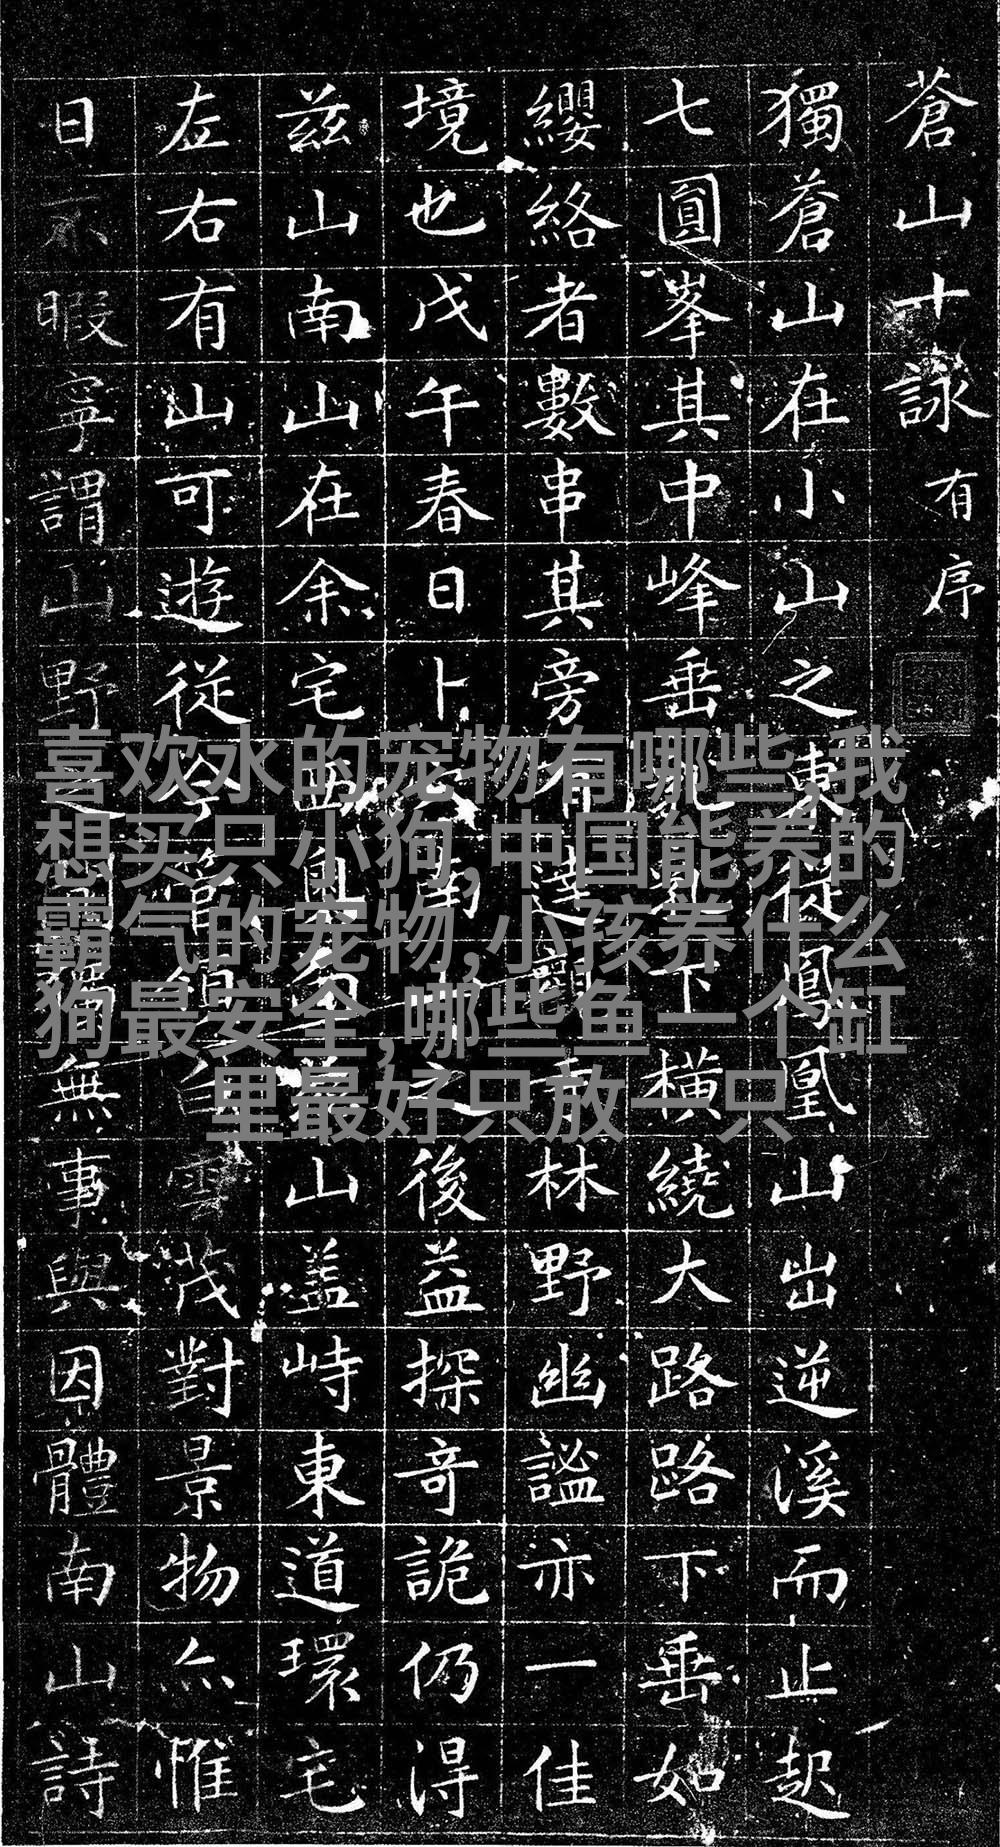 蒼山十詠 有序
獨蒼山在小山之東從鳳凰山出逆溪而止起
七圓峯其中峰垂下橫繞大路路下垂如
纓絡者數串其旁有林野幽謐亦一佳
境也戊午春日卜南之後益探奇詭仍得
茲山南山在余宅西山盖峙東道環宅
左右有山可遊從雲茂對景物亦惟
日不暇寧謂山野之無事與因體南山詩
喜欢水的宠物有哪些,我
想买只小狗,中国能养的
霸气的宠物,小孩养什么
狗最安全,哪些鱼一个缸
里最好只放一只